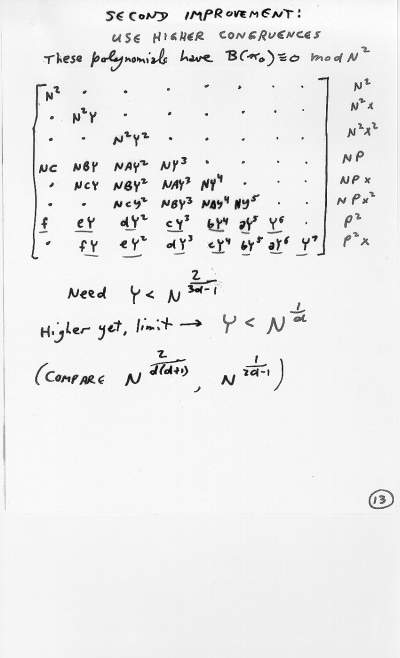 SECOND IMPROVEMENT:
USE HIGHER CONGRUENCES
These polynomials have B(x₀) ≡ 0 mod N²
N² · · · · · · · N²
· N²Y · · · · · · N²x
· · N²Y² · · · · · N²x²
NC NBY NAY² NY³ · · · · NP
· NCY NBY² NAY³ NY⁴ · · · NPx
· · NCY² NBY³ NAY⁴ NY⁵ · · NPx²
f eY dY² cY³ bY⁴ aY⁵ Y⁶ · P²
· fY eY² dY³ cY⁴ bY⁵ aY⁶ Y⁷ P²x
Need Y < N^(2/(3d-1))
Higher yet, limit → Y < N^(1/d)
(COMPARE N^(2/(d(d+1))), N^(1/(2d-1)))
13